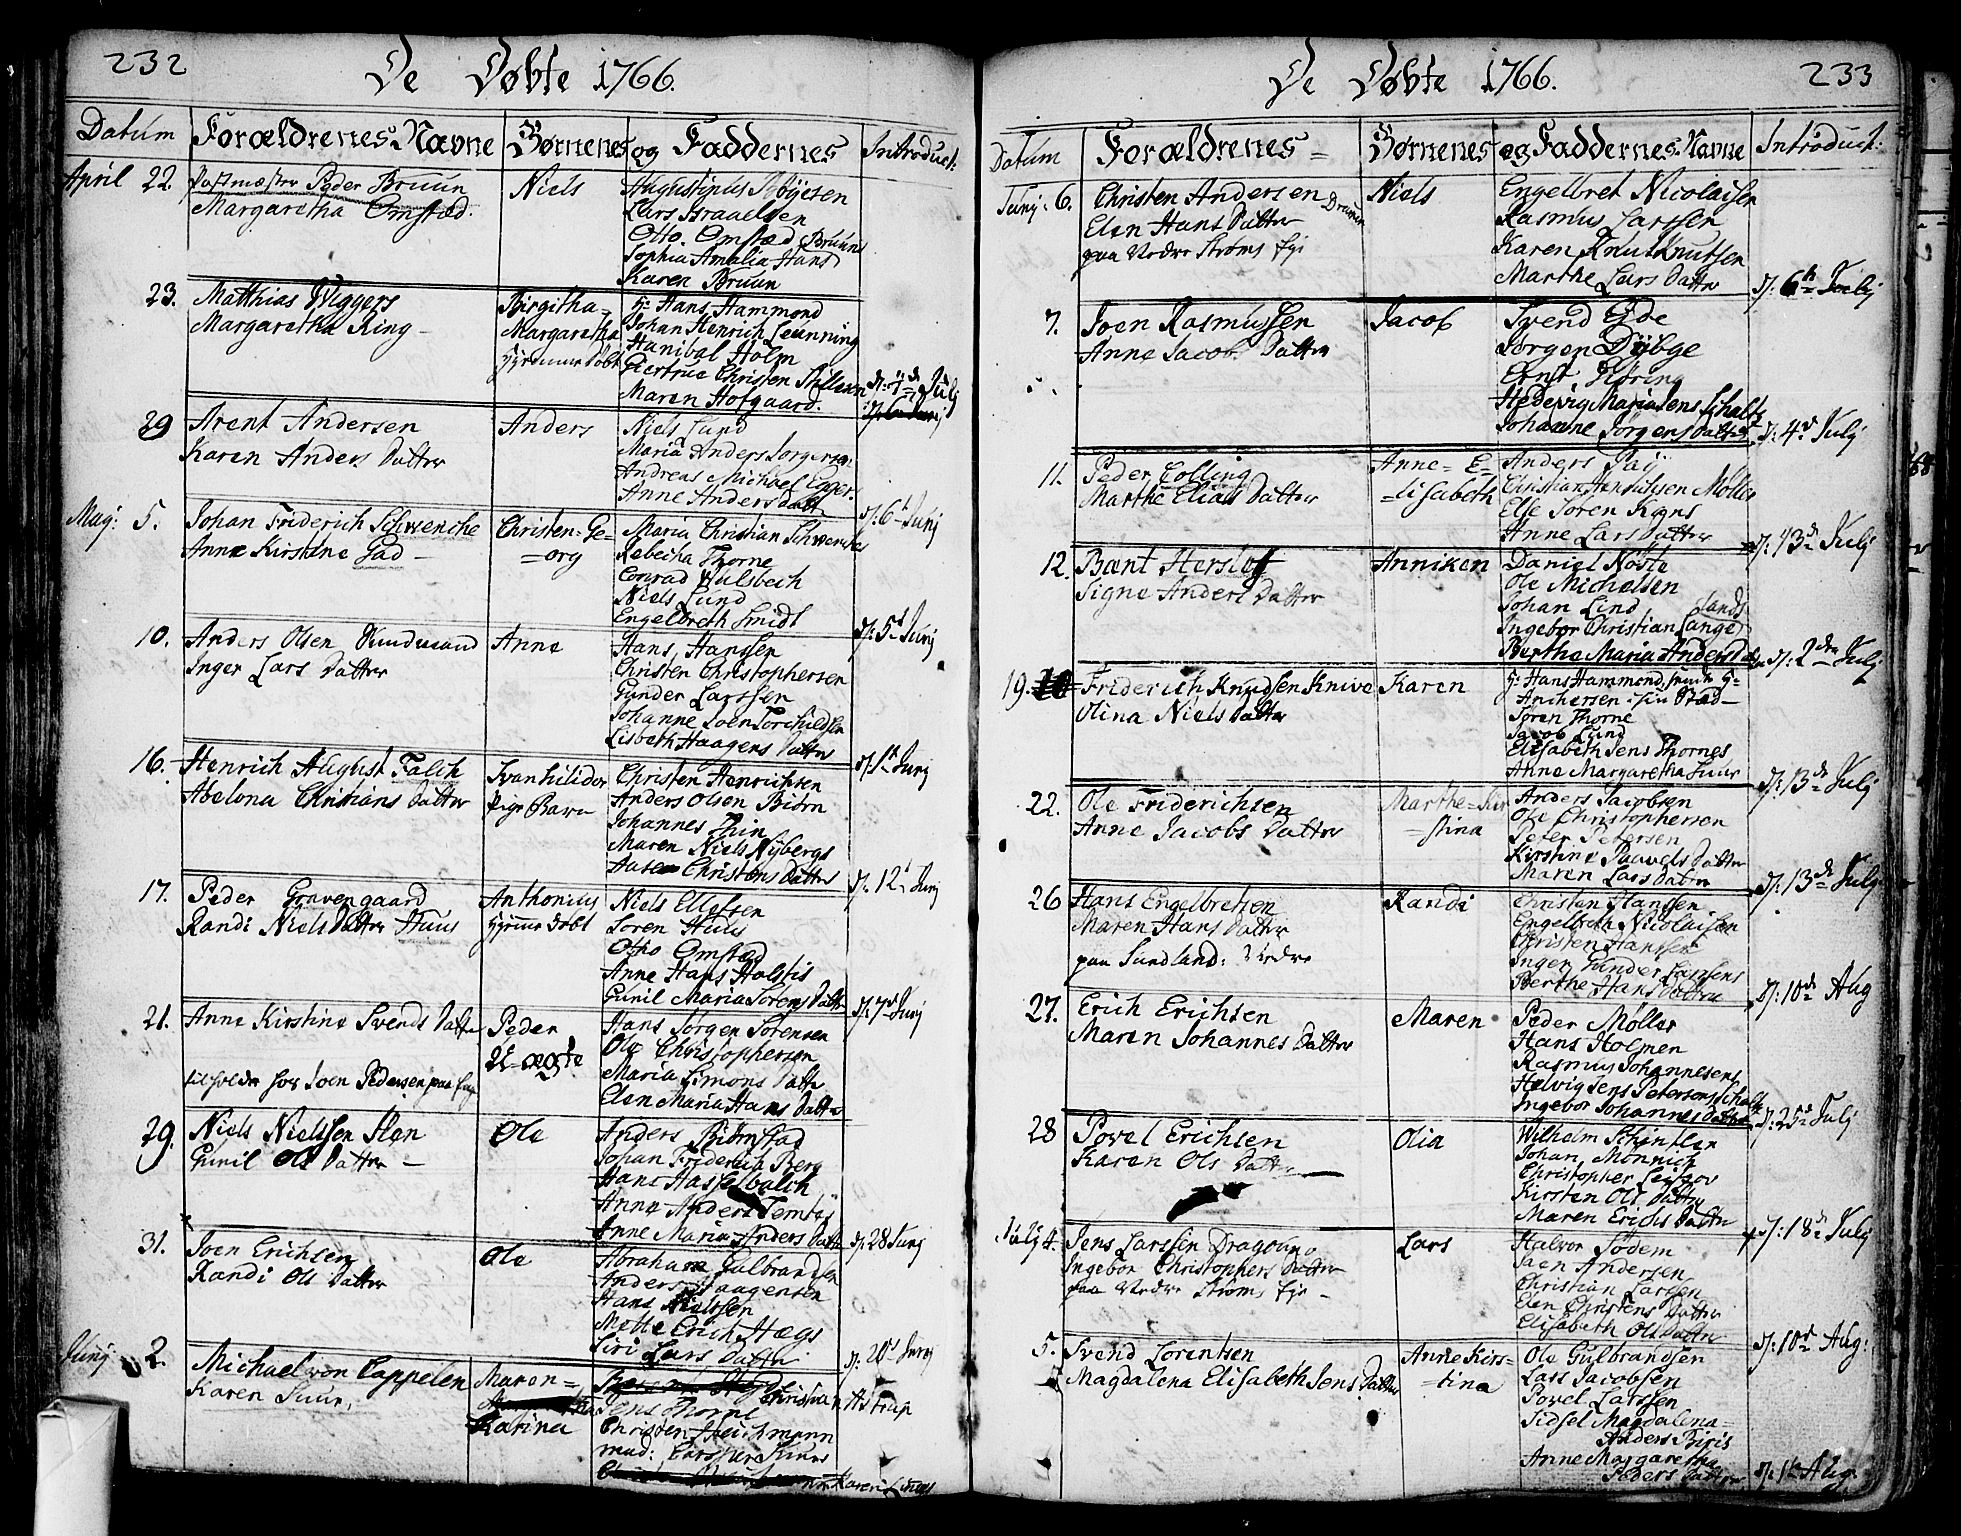 232
De Døbte 1766.
Datum
Forældrenes Navne
Børnenes
og Faddernes
Introduct:
April 22.
Postmæster Peder Bruun
Margaretha Omstæd.
Niels
Augustinus Røyesen
Lars Israelsen
Otto Omstæd
Sophia Amalia Hans Bruuns
Karen Bruun
23.
Matthias Wiggers
Margaretha Ring
Birgitha=
Margaretha
hiemme døbt
Hr. Hans Hammond
Johan Henrich Leunning
Hanibal Holm
Giertrue Christen
Maren Hofgaard.
July
29
Arent Andersen
Karen Anders Datter
Anders
Niels Lund
Maria Anders Jorgersen
Andreas Michael Egger.
Anne Anders datt
d: 6t Junj
Maj: 5.
Johan Friderich Schwencke
Anne Kirstine Gad
Christen=Ge=
=org
Maria Christian Schwenckes
Rebecha Thorne
Conrad Wulsbech
Niels Lund
Engelbreth Smidt
d: 5t Junj
10.
Anders Olsen Kundmand
Inger Lars Datter
Anne
Hans Hanssen
Christen Christophersen
Gunder Larssen
Johanne Joen
Lisbeth Haagens Datter
d: 1t Junj
16.
Henrich August Falch
Abelona Christians Datter
Svanhilidor
Pige Barn
Christen Henrichsen
Anders Olsen Biørn
Johannes Thin
Maren Niels Nybergs
Aasen Christens Datter
d: 12t Junj
17.
Peder Gravengaard
Randi Niels Datter Huus
Anthonius
hiemme døbt
Niels Ellefsen
Soren Huus
Otho Omstæd
Anne Hans Holstis
Gunil Maria Sorens Datter
d: 7t Junj
21.
Anne Kirstine Svends Datter
til holder hos Joen Pedersen paa
Peder
U=ægte
Hans Jørgen Sörensen
Ole Christophersen
Maria Simons Datt
Elen Maria Hans Datter
29.
Niels Nielssen Sten
Gunil Ols Datter
Ole
Anders Biørnstad
Johan Friderich Berg
Hans Hasselbalch
Anne Anders
Anne Maria Anders Datt
d: 28 Junj
31.
Joen Erichsen
Randi Ols Datter
Ole
Abraham Gulbrandsen
Anders Haagensen
Hans Nielssen
Mette Erich Hægs
Siri Lars Datter
d: 20t Junj
Junj 2.
Michael von Cappelen
Karen Suur,
Maren=
Karina
Christian Astrup
Jens Thorne
Christen Heuchmann
mad: Casper Suurs
Karen
233
De Døbte 1766.
Datum
Forældrenes=
Børnenes
og Faddernes Navne
Introduct:
Junj: 6.
Christen Andersen Draven
Elen Hans Datter
paa Nedre Strøms Eje
Niels
Engelbret Nicolaisen
Rasmus Larssen
Karen Knut Knutsen
Marthe Lars Datter
d: 6t July
7.
Joen Rasmussen
Anne Jacobs Datter
Jacob
Svend Eyde
Jørgen Dybge
Ernst Høring
Hedevig Maria Jens Schults
Johanne Jorgens Datter
d: 4t July
11.
Peder Colling
Marthe Elias Datter
Anne=E=
=lisabeth
Anders Paj
Christian Hendrichsen Møller
Else Soren Kiøns
Anne Lars Datter
d: 13de July
12.
Bænt Herslof
Signe Anders Datter
Anniken
Daniel Nøste
Ole Michelsen
Johan Lind
Ingebor Christian Lange
Berthe Maria Anders D
d: 2den July
19.
Friderich Knudsen Knive
Olina Niels Datter
Karen
Hr. Hans Hammond,
Anchersen
Soren Thorne
Jacob Lund
Elisabeth Jens Thornes
Anne Margaretha Suur
d: 13de July
22.
Ole Friderichsen
Anne Jacobs Datter
Marthe=Kir
=stina
Anders Jacobsen
Ole Christophersen
Peter Petersen
Kirstine Pauvels Datter
Maren Lars Datter
d: 13de July
26
Hans Engelbretsen
Maren Hans Datter
paa Sundland: Nedre
Randi
Christen Hanssen
Engelbreth Nicolaisen
Christen Hanssen
Inger Gunder Larssens
Berthe Hans Datter
d: 10de Aug
27.
Erich Erichsen
Maren Johannes Datter
Maren
Peder Møller
Hans Holmen
Rasmus Johannesens
Helvig Jens Petersons
Ingebor Johannes Datter
d: 25de July
28
Povel Erichsen
Karen Ols Datter
Olia
Wilhelm Schindler
Johan Mønnich
Christopher
Kirsten Ols Datter
Maren Erichs Datter
d: 18de July
July 4.
Jens Larssen Dragoun
Ingebor Christophers Datter
paa Nedre Strøms Eje
Lars
Halvor Sødem
Joen Andersen
Christian Larssen
Elen Christens Datter
Elisabeth Ols Datter
d: 10de Aug:
5.
Svend Lorentsen
Magdalena Elisabeth Jens Datter
Anne Kirs=
=tina
Ole Gulbrandsen
Lars Jacobsen
Povel Larssen
Sidsel Magdalena
Anders Biris
Anne Margaretha
Peders Datter
d: 1t Aug.